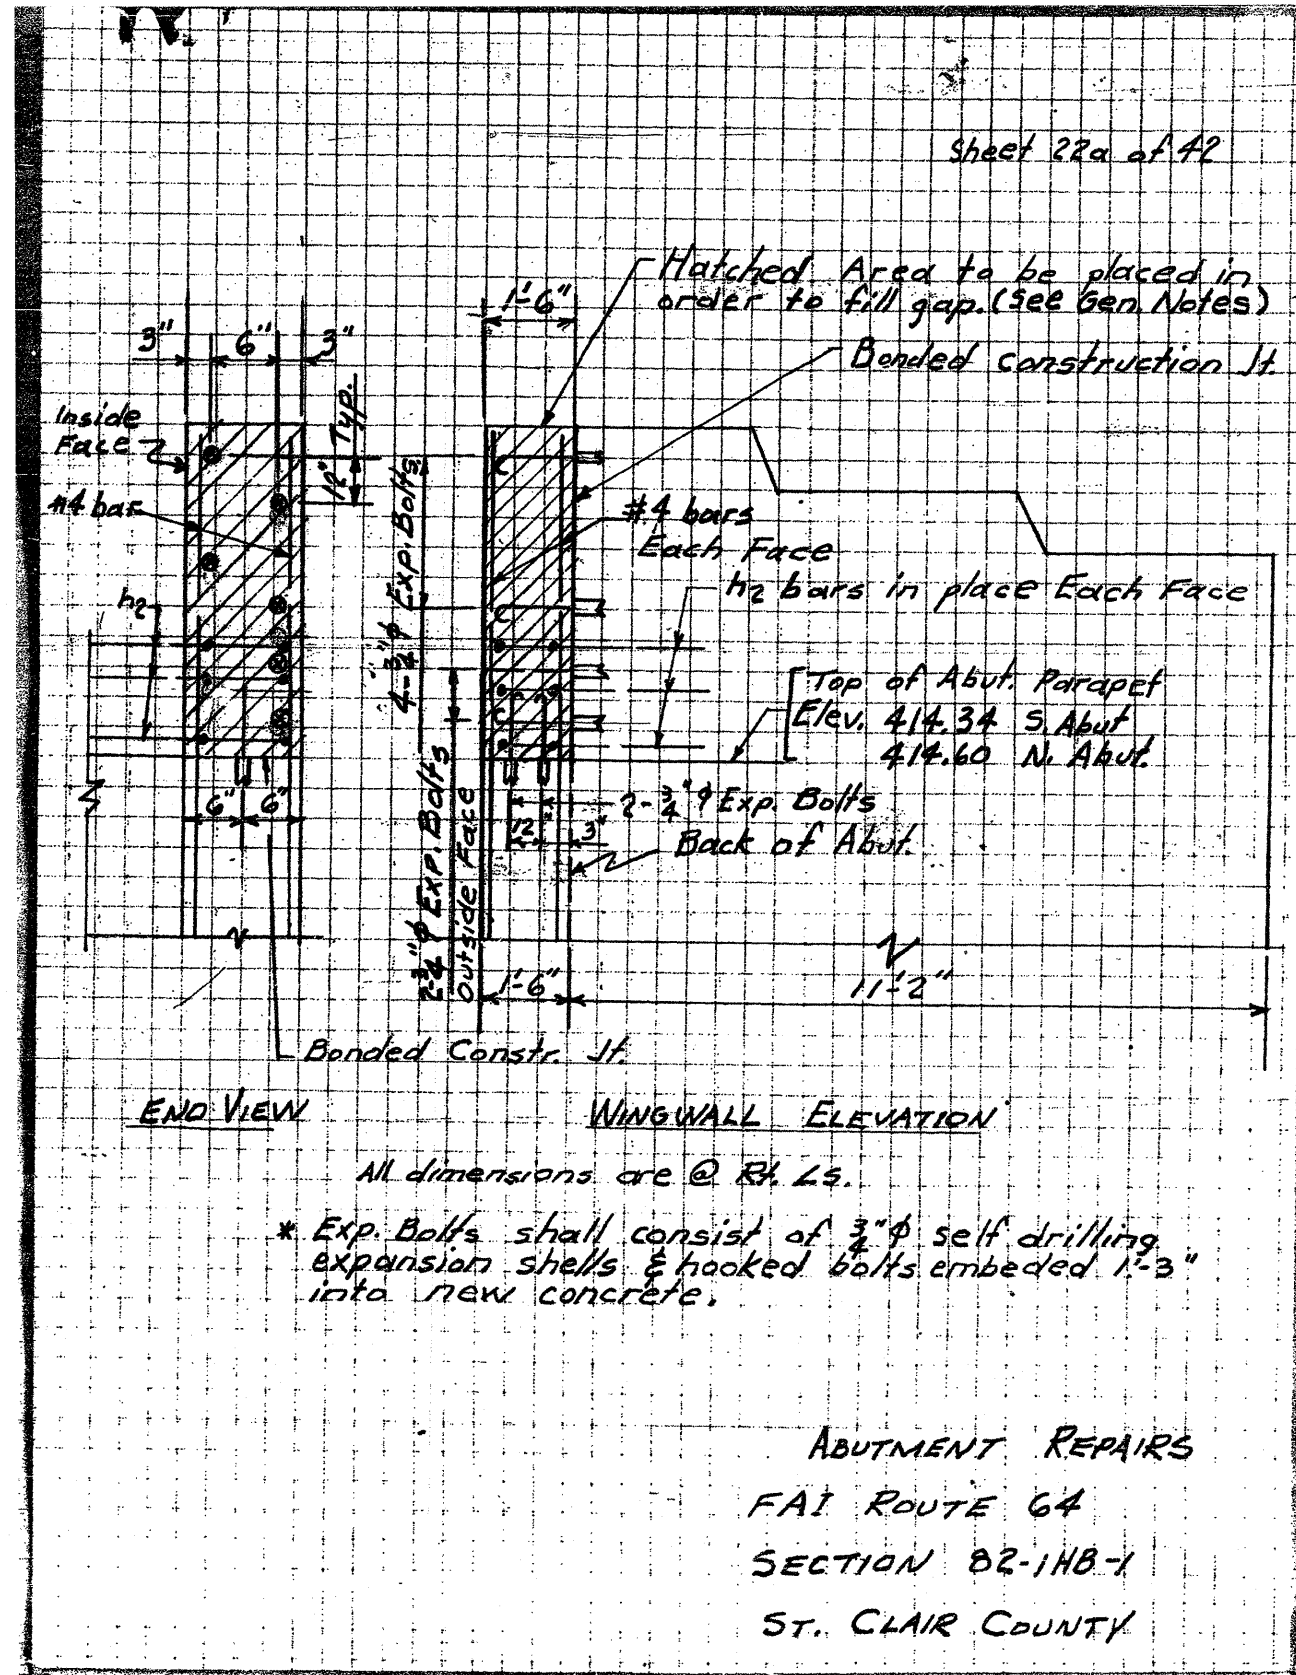 Sheet 22a of 42
Hatched Area to be placed in
order to fill gap. (See Gen. Notes)
1'-6"
3" 6" 3"
Bonded construction Jt.
Inside
Face
12" Typ.
#4 bar
#4 bars
Each Face
4-¾"φ Exp. Bolts
h2
h2 bars in place Each Face
Top of Abut. Parapet
Elev. 414.34 S. Abut
414.60 N. Abut.
6" 6"
2-¾"φ Exp. Bolts
Outside Face
* *
2-¾"φ Exp. Bolts
12 3"
Back of Abut.
1'-6"
11'-2"
Bonded Constr. Jt.
END VIEW
WINGWALL ELEVATION
All dimensions are @ Rt. ∠s.
* Exp. Bolts shall consist of ¾"φ self drilling
expansion shells & hooked bolts embeded 1'-3"
into new concrete.
ABUTMENT REPAIRS
FAI ROUTE 64
SECTION 82-1HB-1
ST. CLAIR COUNTY